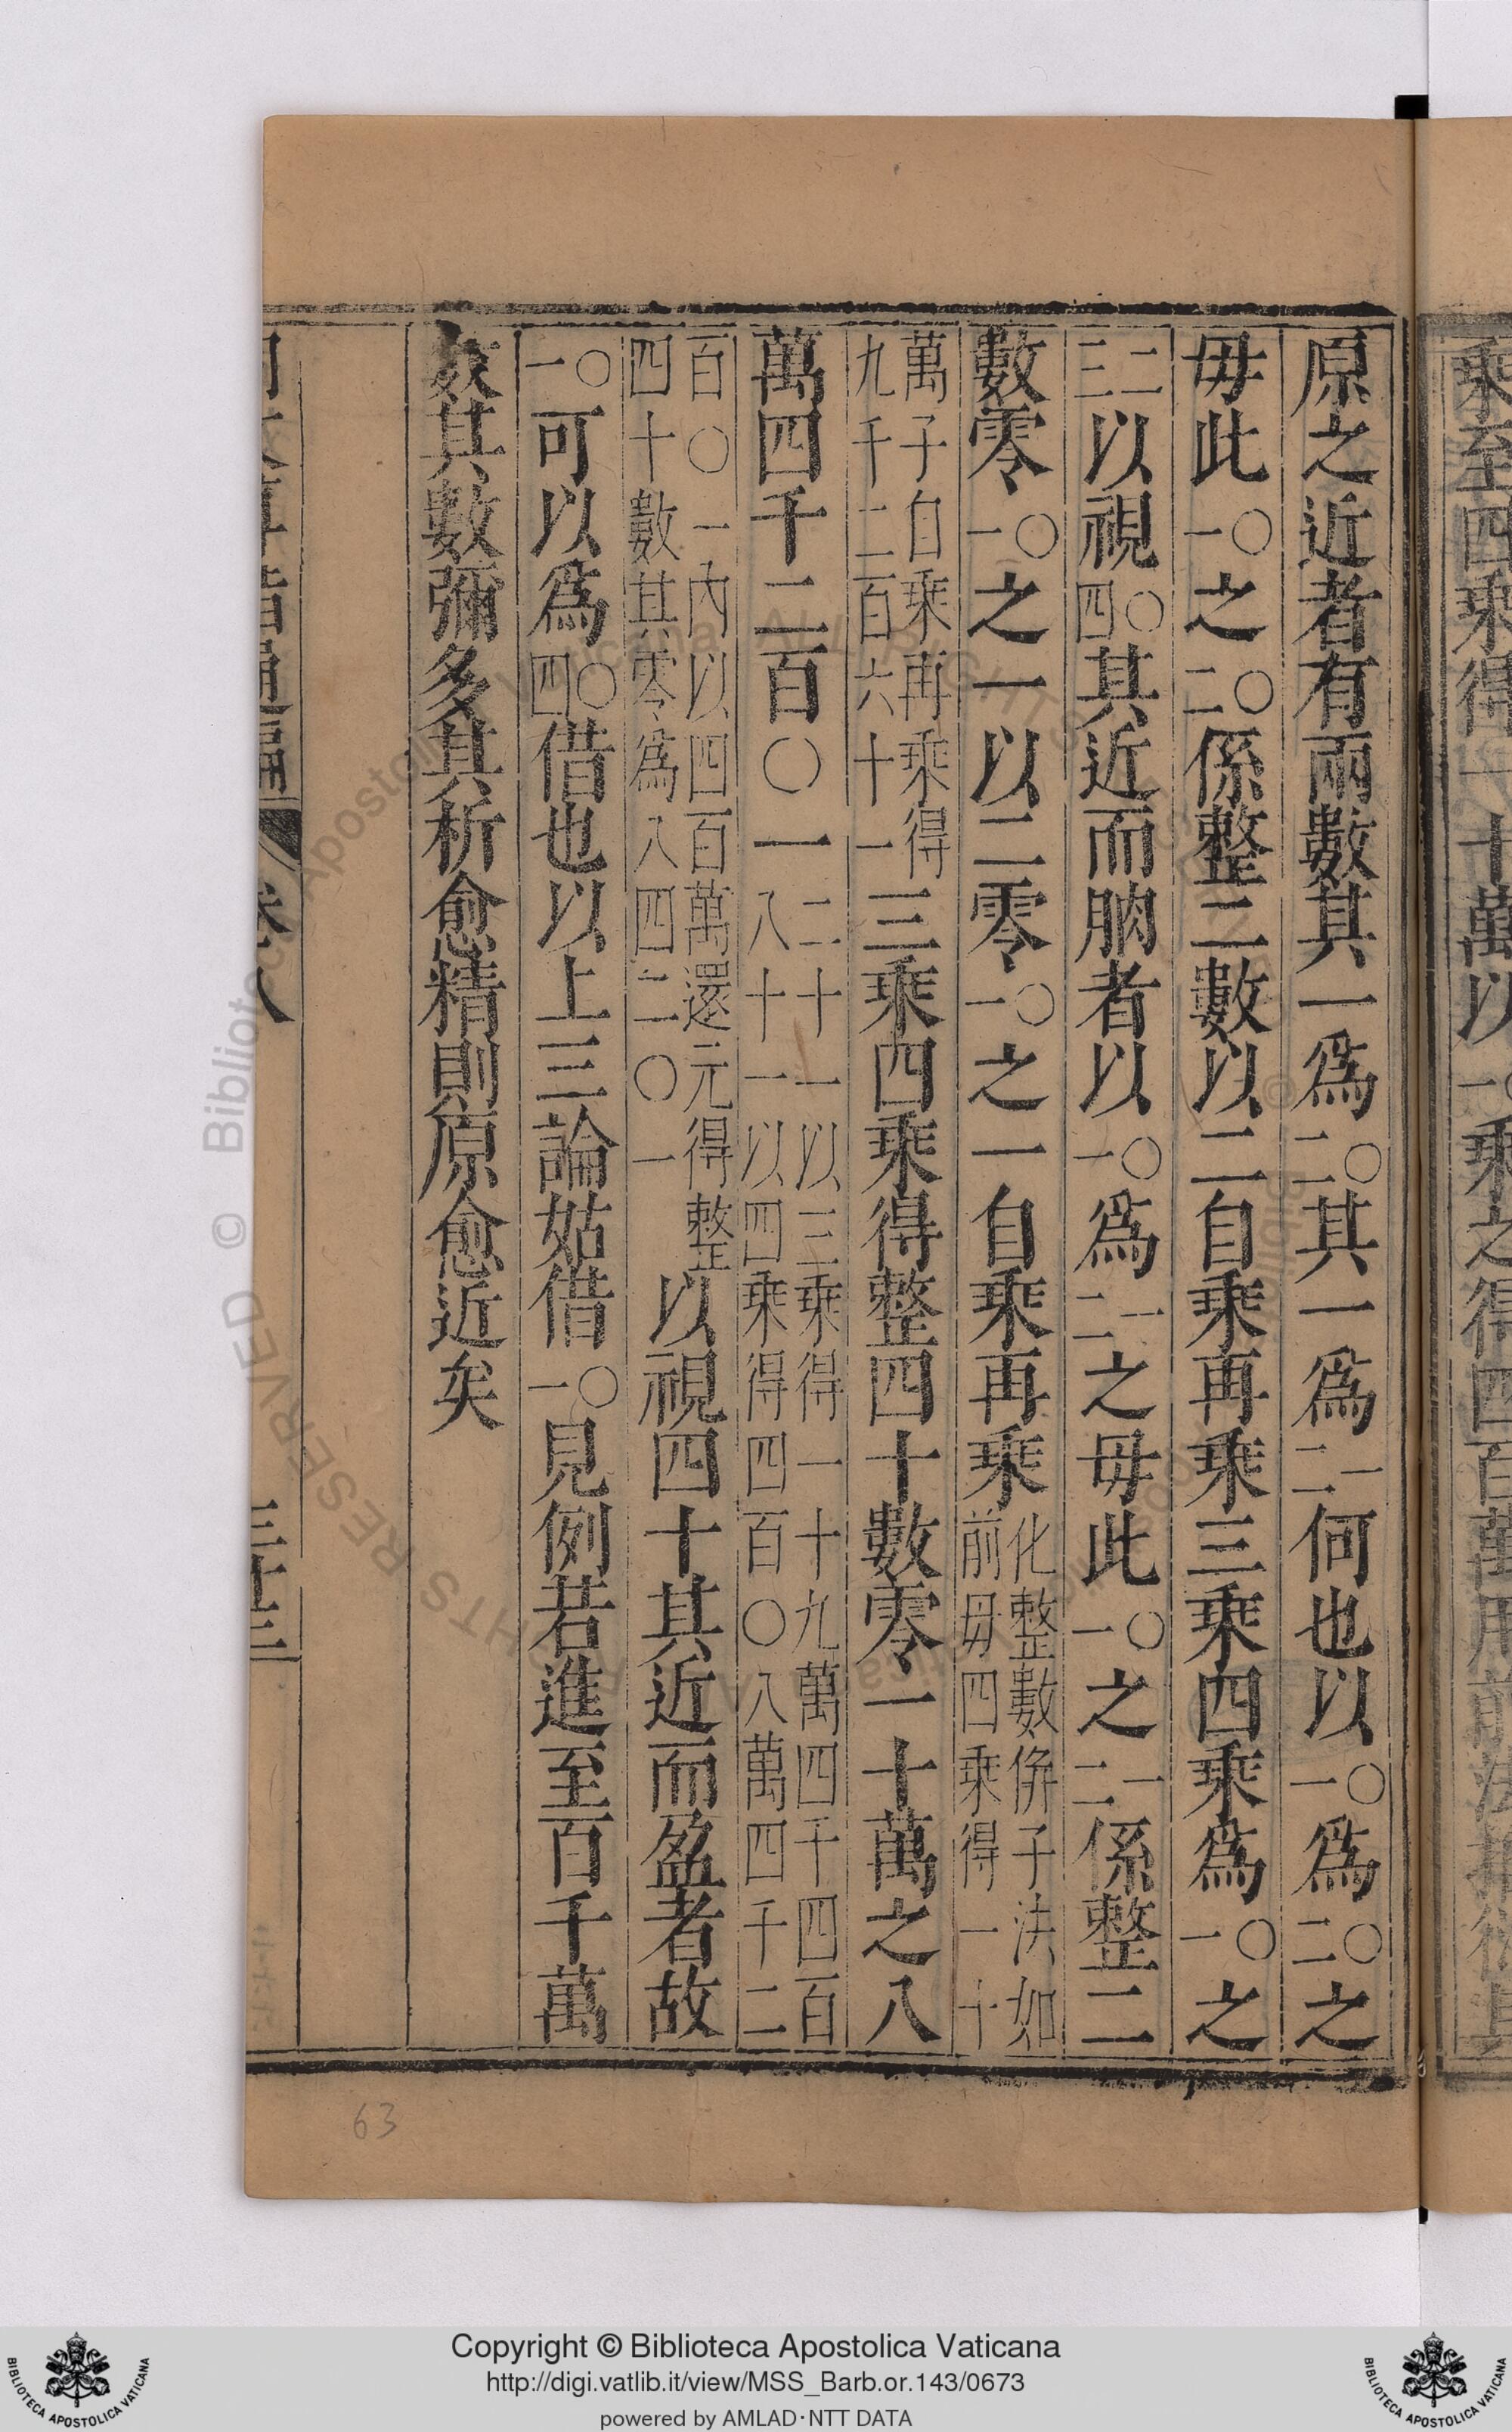 乘至四乘得一十萬以一〇乘之得四百萬用前法
原之近者有兩數其一為二〇其一為二一何也以一〇為二〇之
毋此一〇之二〇係整二數以二自乘再乘三乘四乘為一〇之
三二以視四〇其近而朒者以一〇為二一之毋此一〇之二一係整二
數零一〇之一以二零一〇之一自乘再乘化整數倂子法如前毋四乘得一十
萬子自乘再乘得九千二百六十一三乘四乘得整四十數零一十萬之八
萬四千二百〇一二十一以三乘得一十九萬四千四百八十一以四乘得四百〇八萬四千二
百〇一內以四百萬還元得整四十數其零為八四二〇一以視四十其近而盈者故
一〇可以為四〇借也以上三論姑借一〇見例若進至百千萬
姟其數彌多其析愈精則原愈近矣
卷八 三十三
63
Copyright © Biblioteca Apostolica Vaticana
http://digi.vatlib.it/view/MSS_Barb.or.143/0673
powered by AMLAD·NTT DATA